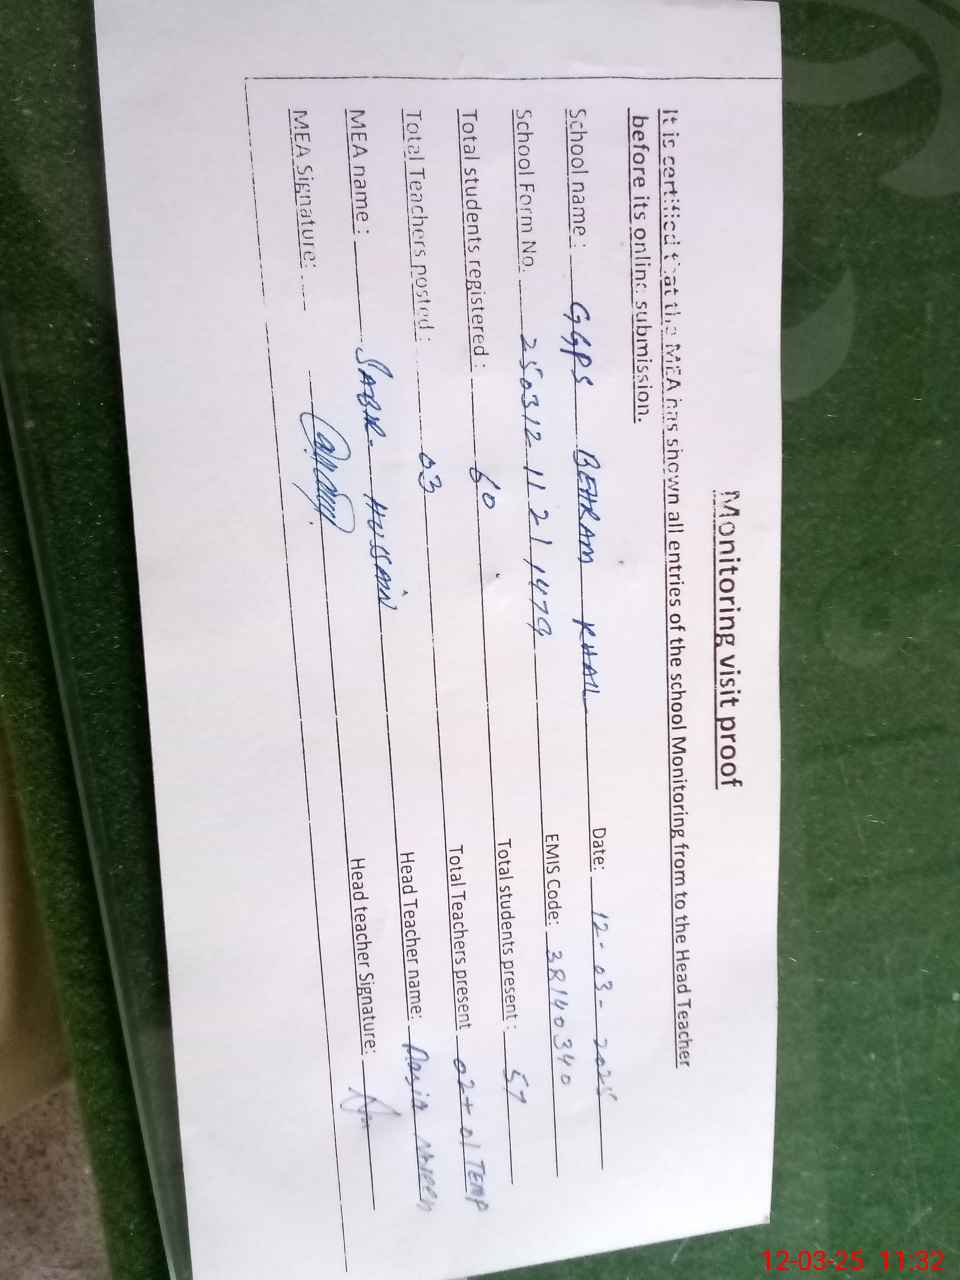 Monitoring visit proof
It is certified that the MEA has shown all entries of the school Monitoring from to the Head Teacher
before its online submission.
School name : GGPS BEHRAM KHAIL Date: 12-03-2025
School Form No. 250312 11 21 1479 EMIS Code: 38140340
Total students registered : 60 Total students present : 57
Total Teachers posted : 03 Total Teachers present 02+01 TEMP
MEA name : SABIR HUSSAIN Head Teacher name:
MEA Signature: Head teacher Signature:
12-03-25 11:32